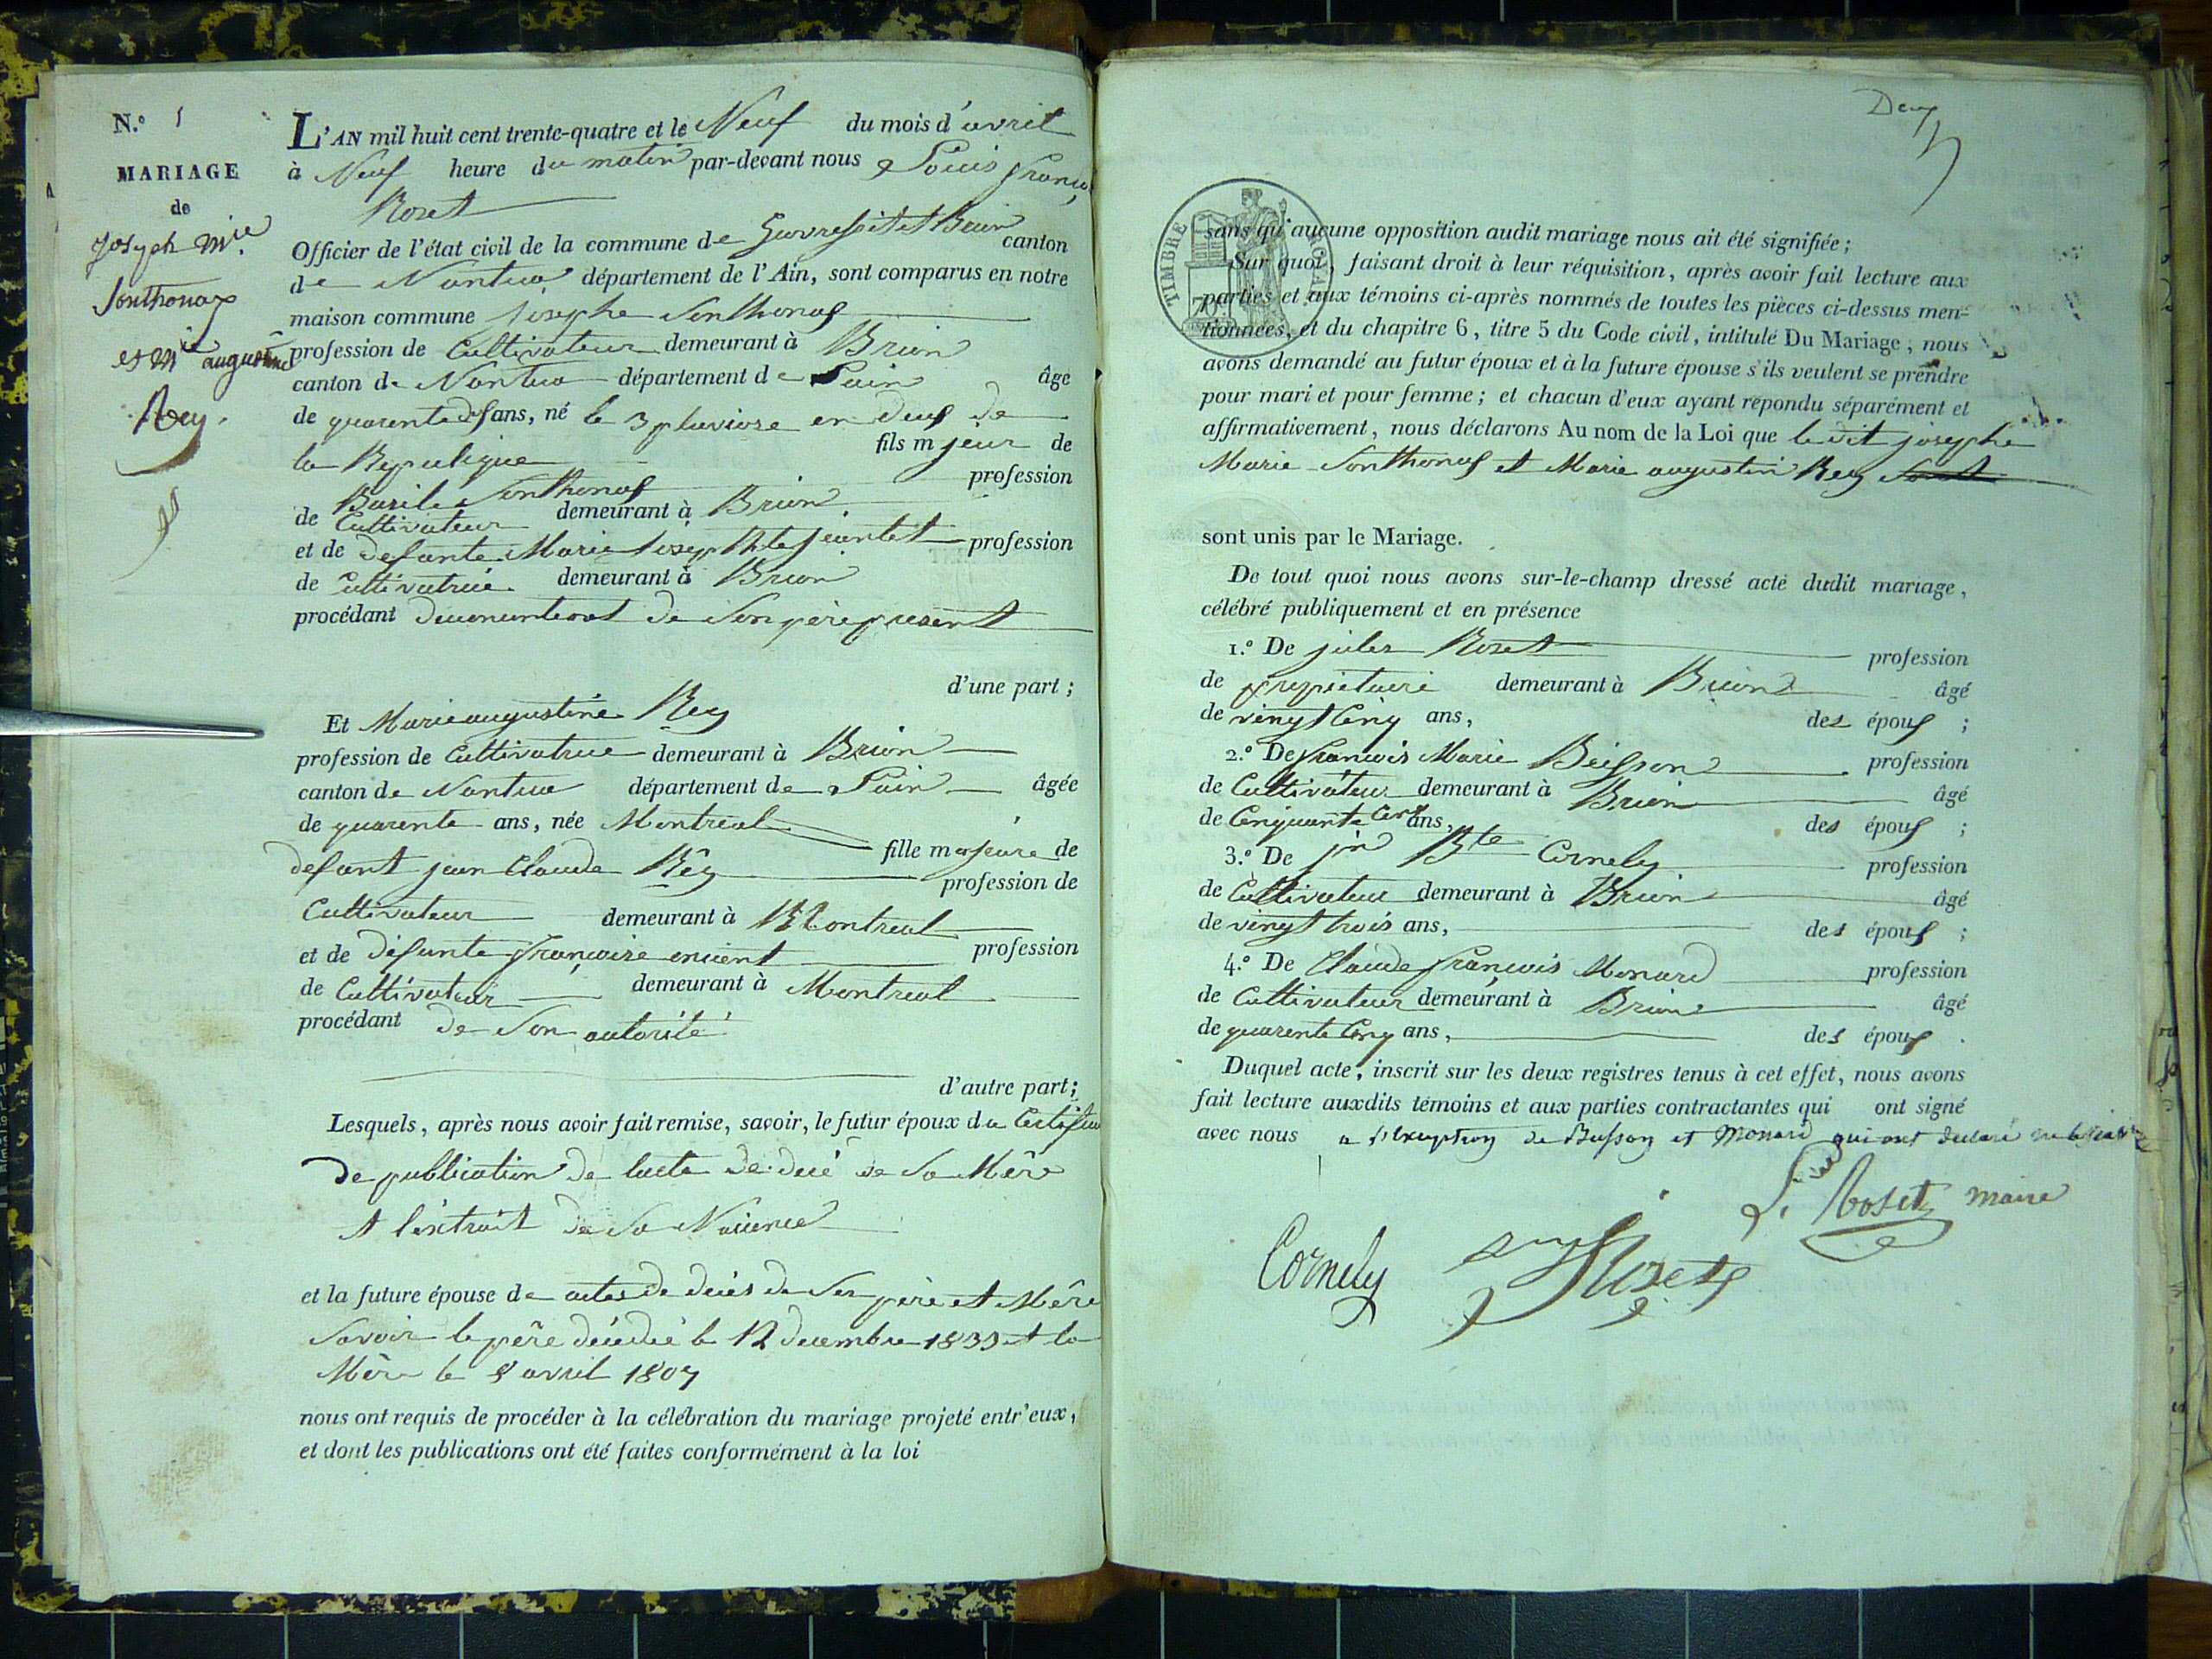 N.º 1
MARIAGE
de
Joseph Mie
Sonthonax
et Mie augustine
Rey.
L'AN mil huit cent trente-quatre et le Neuf du mois d'avril
à Neuf heure du matin par-devant nous Louis françois
Roset
Officier de l'état civil de la commune de et Brion canton
de Nantua département de l'Ain, sont comparus en notre
maison commune Josephe Sonthonas
profession de Cultivateur demeurant à Brion
canton de Nantua département de Lain âge
de quarente ans, né le 3 pluviose en deux de
la Republique fils majeur de
Basile Sonthonas profession
de Cultivateur demeurant à Brion
et de defunte Marie Josephte Jeantet profession
de Cultivatrice demeurant à Brion
procédant de son père present
d'une part ;
Et Marie augustine Rey
profession de Cultivatrice demeurant à Brion
canton de Nantua département de Lain âgée
de quarente ans, née Montreal
fille majeure de
defunt jean Claude Rey profession de
Cultivateur demeurant à Montreal
et de defunte françoise profession
de Cultivateur demeurant à Montreal
procédant de Son autorité
d'autre part ;
Lesquels, après nous avoir fait remise, savoir, le futur époux du
de publication de lacte de decé de Sa Mère
et l'extrait de Sa
et la future épouse de actes de decés de Ses père et Mère
Savoir le père décedé le 12 decembre 1833 et la
Mère le 8 avril 1807
nous ont requis de procéder à la célébration du mariage projeté entr'eux,
et dont les publications ont été faites conformément à la loi
Deux
TIMBRE ROYAL
70
sans qu'aucune opposition audit mariage nous ait été signifiée ;
Sur quoi, faisant droit à leur réquisition, après avoir fait lecture aux
parties et aux témoins ci-après nommés de toutes les pièces ci-dessus men-
tionnées, et du chapitre 6, titre 5 du Code civil, intitulé Du Mariage, nous
avons demandé au futur époux et à la future épouse s'ils veulent se prendre
pour mari et pour femme ; et chacun d'eux ayant répondu séparément et
affirmativement, nous déclarons Au nom de la Loi que le dit josephe
Marie Sonthonas et Marie augustin Rey Sont
sont unis par le Mariage.
De tout quoi nous avons sur-le-champ dressé acte dudit mariage,
célébré publiquement et en présence
1.º De jules Roset profession
de propietaire demeurant à Brion âgé
de vingt Cinq ans, des époux ;
2.º De francois Marie profession
de Cultivateur demeurant à Brion âgé
de Cinquante ans, des époux ;
3.º De jn Bte Cornely profession
de Cultivateur demeurant à Brion âgé
de vingt trois ans, des époux ;
4.º De Claude francois Monard profession
de Cultivateur demeurant à Brion âgé
de quarente Cinq ans, des époux .
Duquel acte, inscrit sur les deux registres tenus à cet effet, nous avons
fait lecture auxdits témoins et aux parties contractantes qui ont signé
avec nous a l'exception de Busson et Monard qui ont declaré ne le
L. Roset maire
Cornely
Roset